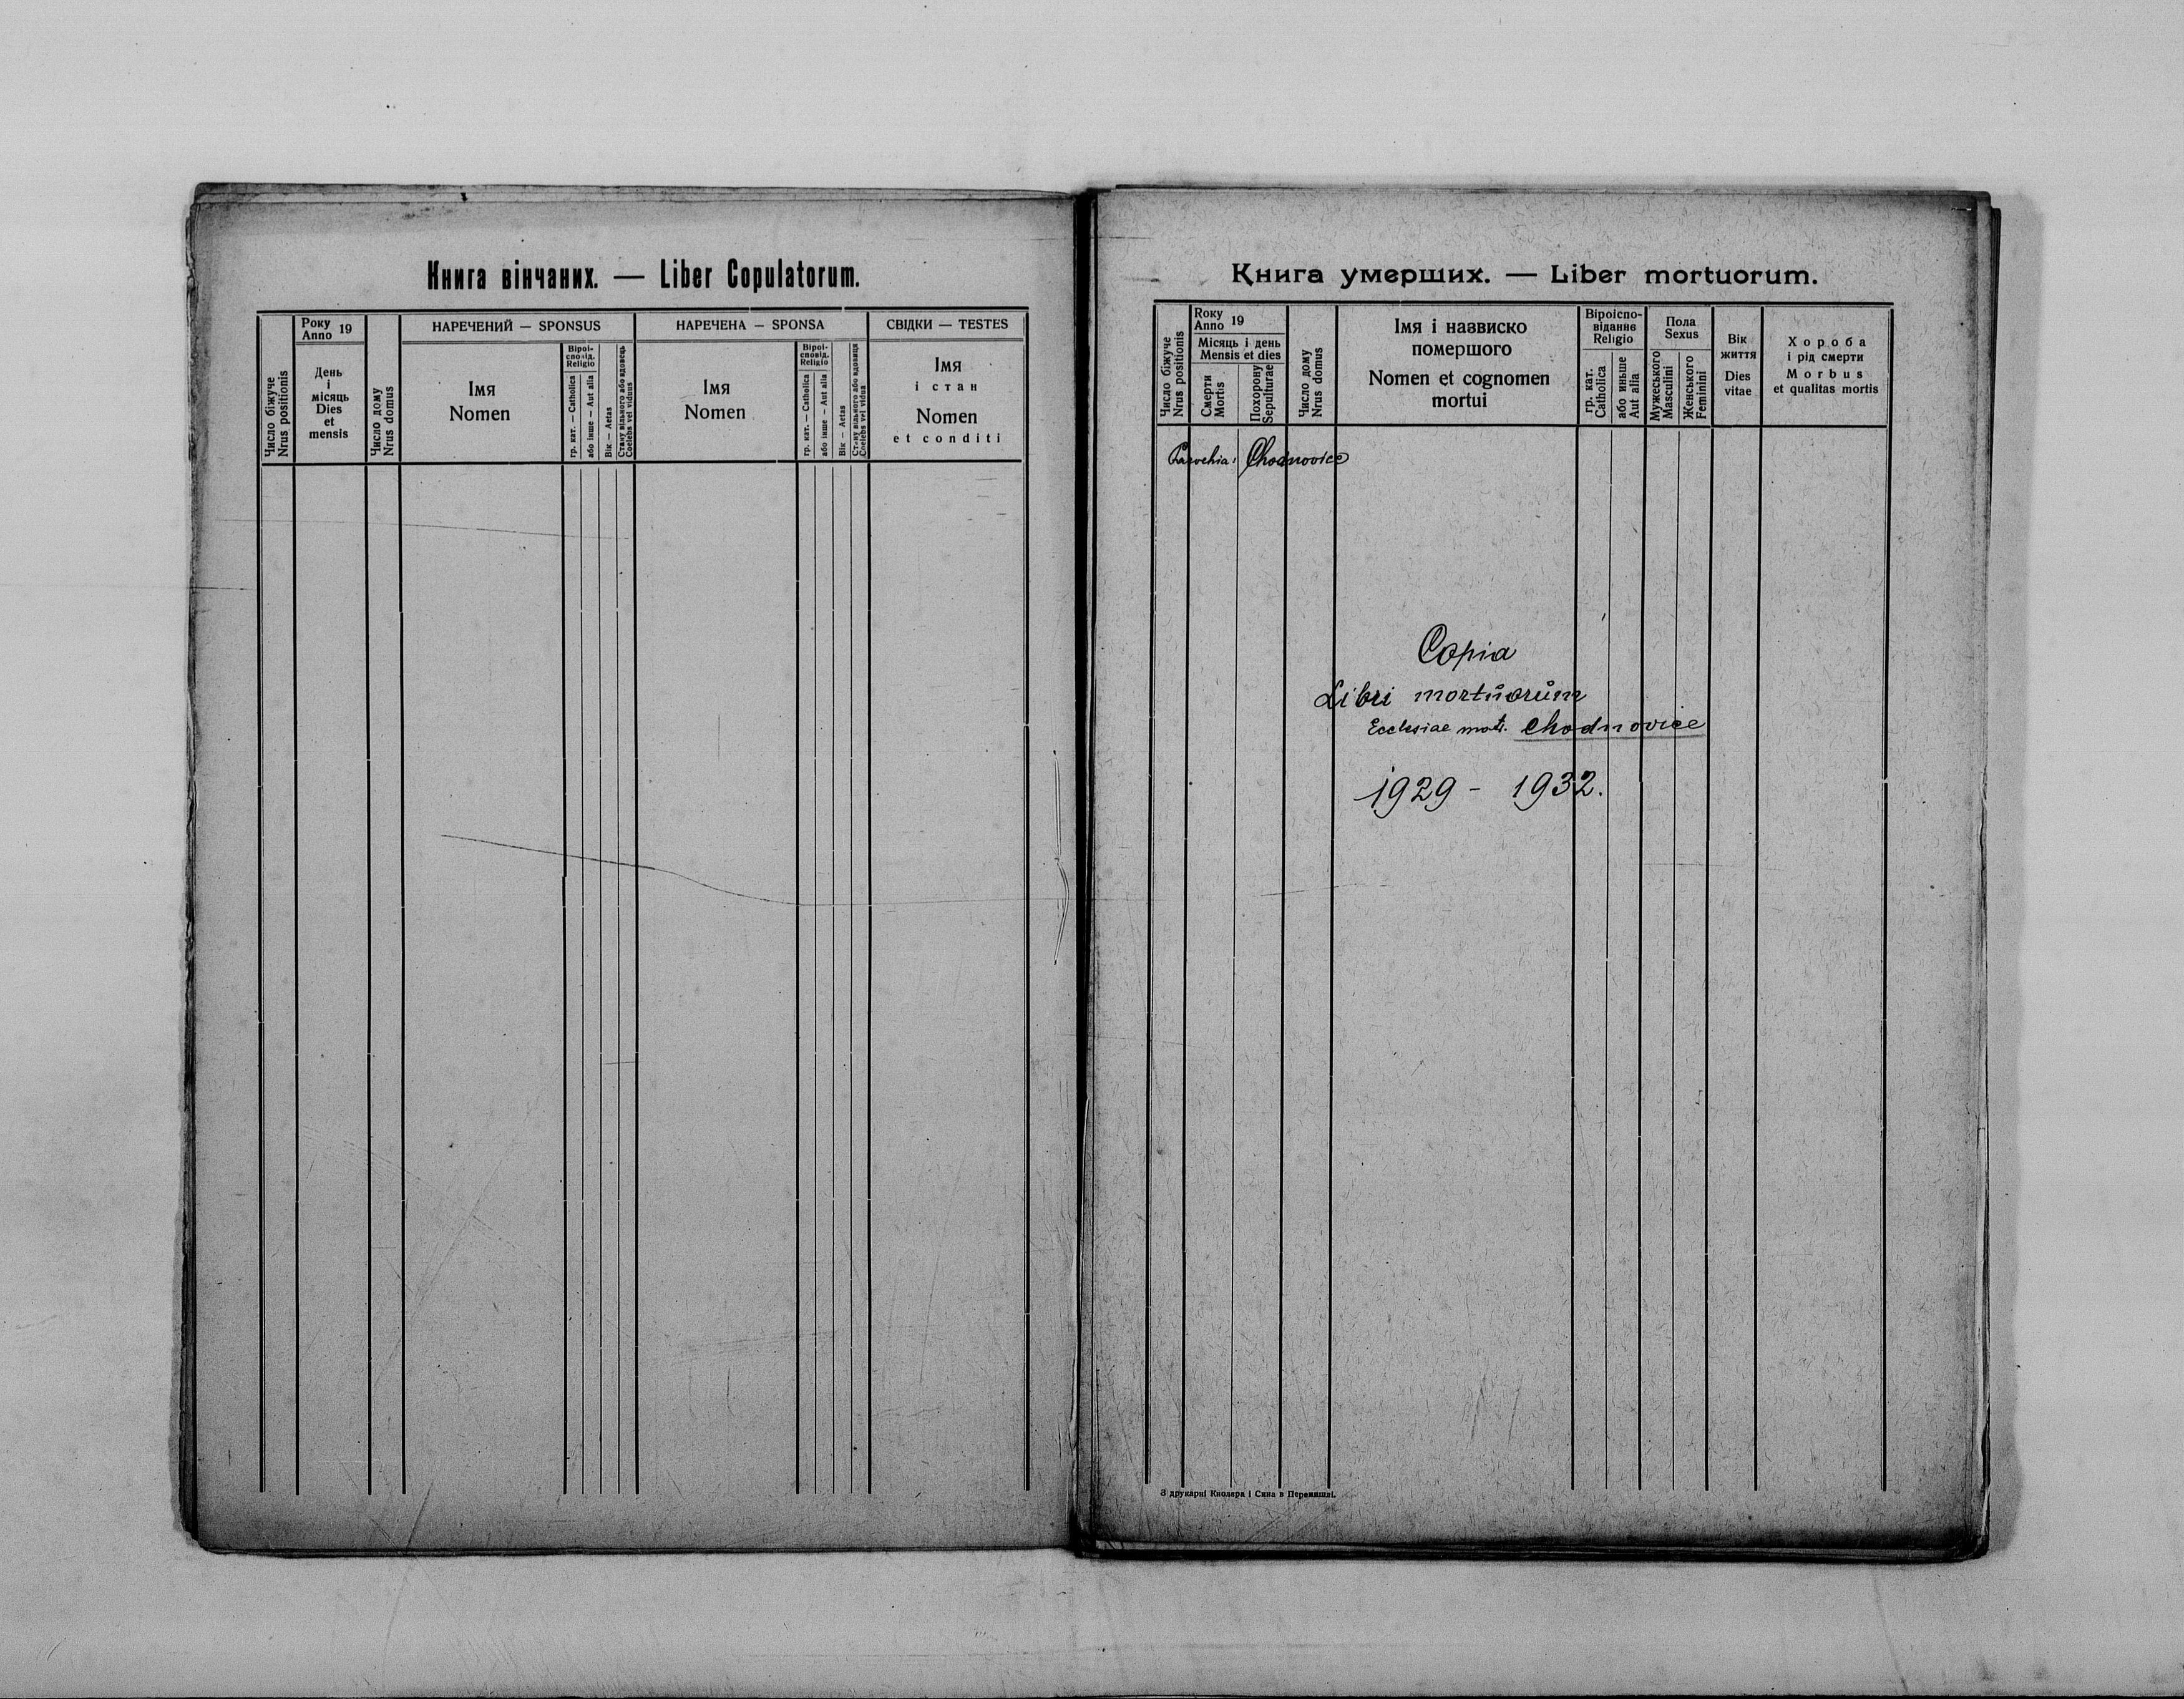 Книга вінчаних. — Liber Copulatorum.
Число біжуче
Nrus positionis
Року
Anno 19
День
і
місяць
Dies
et
mensis
Число дому
Nrus domus
НАРЕЧЕНИЙ — SPONSUS
Імя
Nomen
Віроі-
сповід.
Religio
гр. кат. — Catholica
або інше — Aut alia
Вік — Aetas
Стану вільного або вдовець
Coelebs vel viduus
НАРЕЧЕНА — SPONSA
Імя
Nomen
Віроі-
сповід.
Religio
гр. кат. — Catholica
або інше — Aut alia
Вік — Aetas
Стану вільного або вдовиця
Coelebs vel vidua
СВІДКИ — TESTES
Імя
і стан
Nomen
et conditi
Книга умерших. — Liber mortuorum.
Число біжуче
Nrus positionis
Року
Anno 19
Місяць і день
Mensis et dies
Смерти
Mortis
Похорону
Sepulturae
Число дому
Nrus domus
Імя і назвиско
помершого
Nomen et cognomen
mortui
Віроіспо-
віданнє
Religio
гр. кат.
Catholica
або иньше
Aut alia
Пола
Sexus
Мужеського
Masculini
Женського
Feminini
Вік
життя
Dies
vitae
Хороба
і рід смерти
Morbus
et qualitas mortis
Parochia: Chodnovice
Copia
Libri mortuorum
Ecclesiae matr. Chodnovice
1929 - 1932.
З друкарні Кноллера і Сина в Перемишлі.